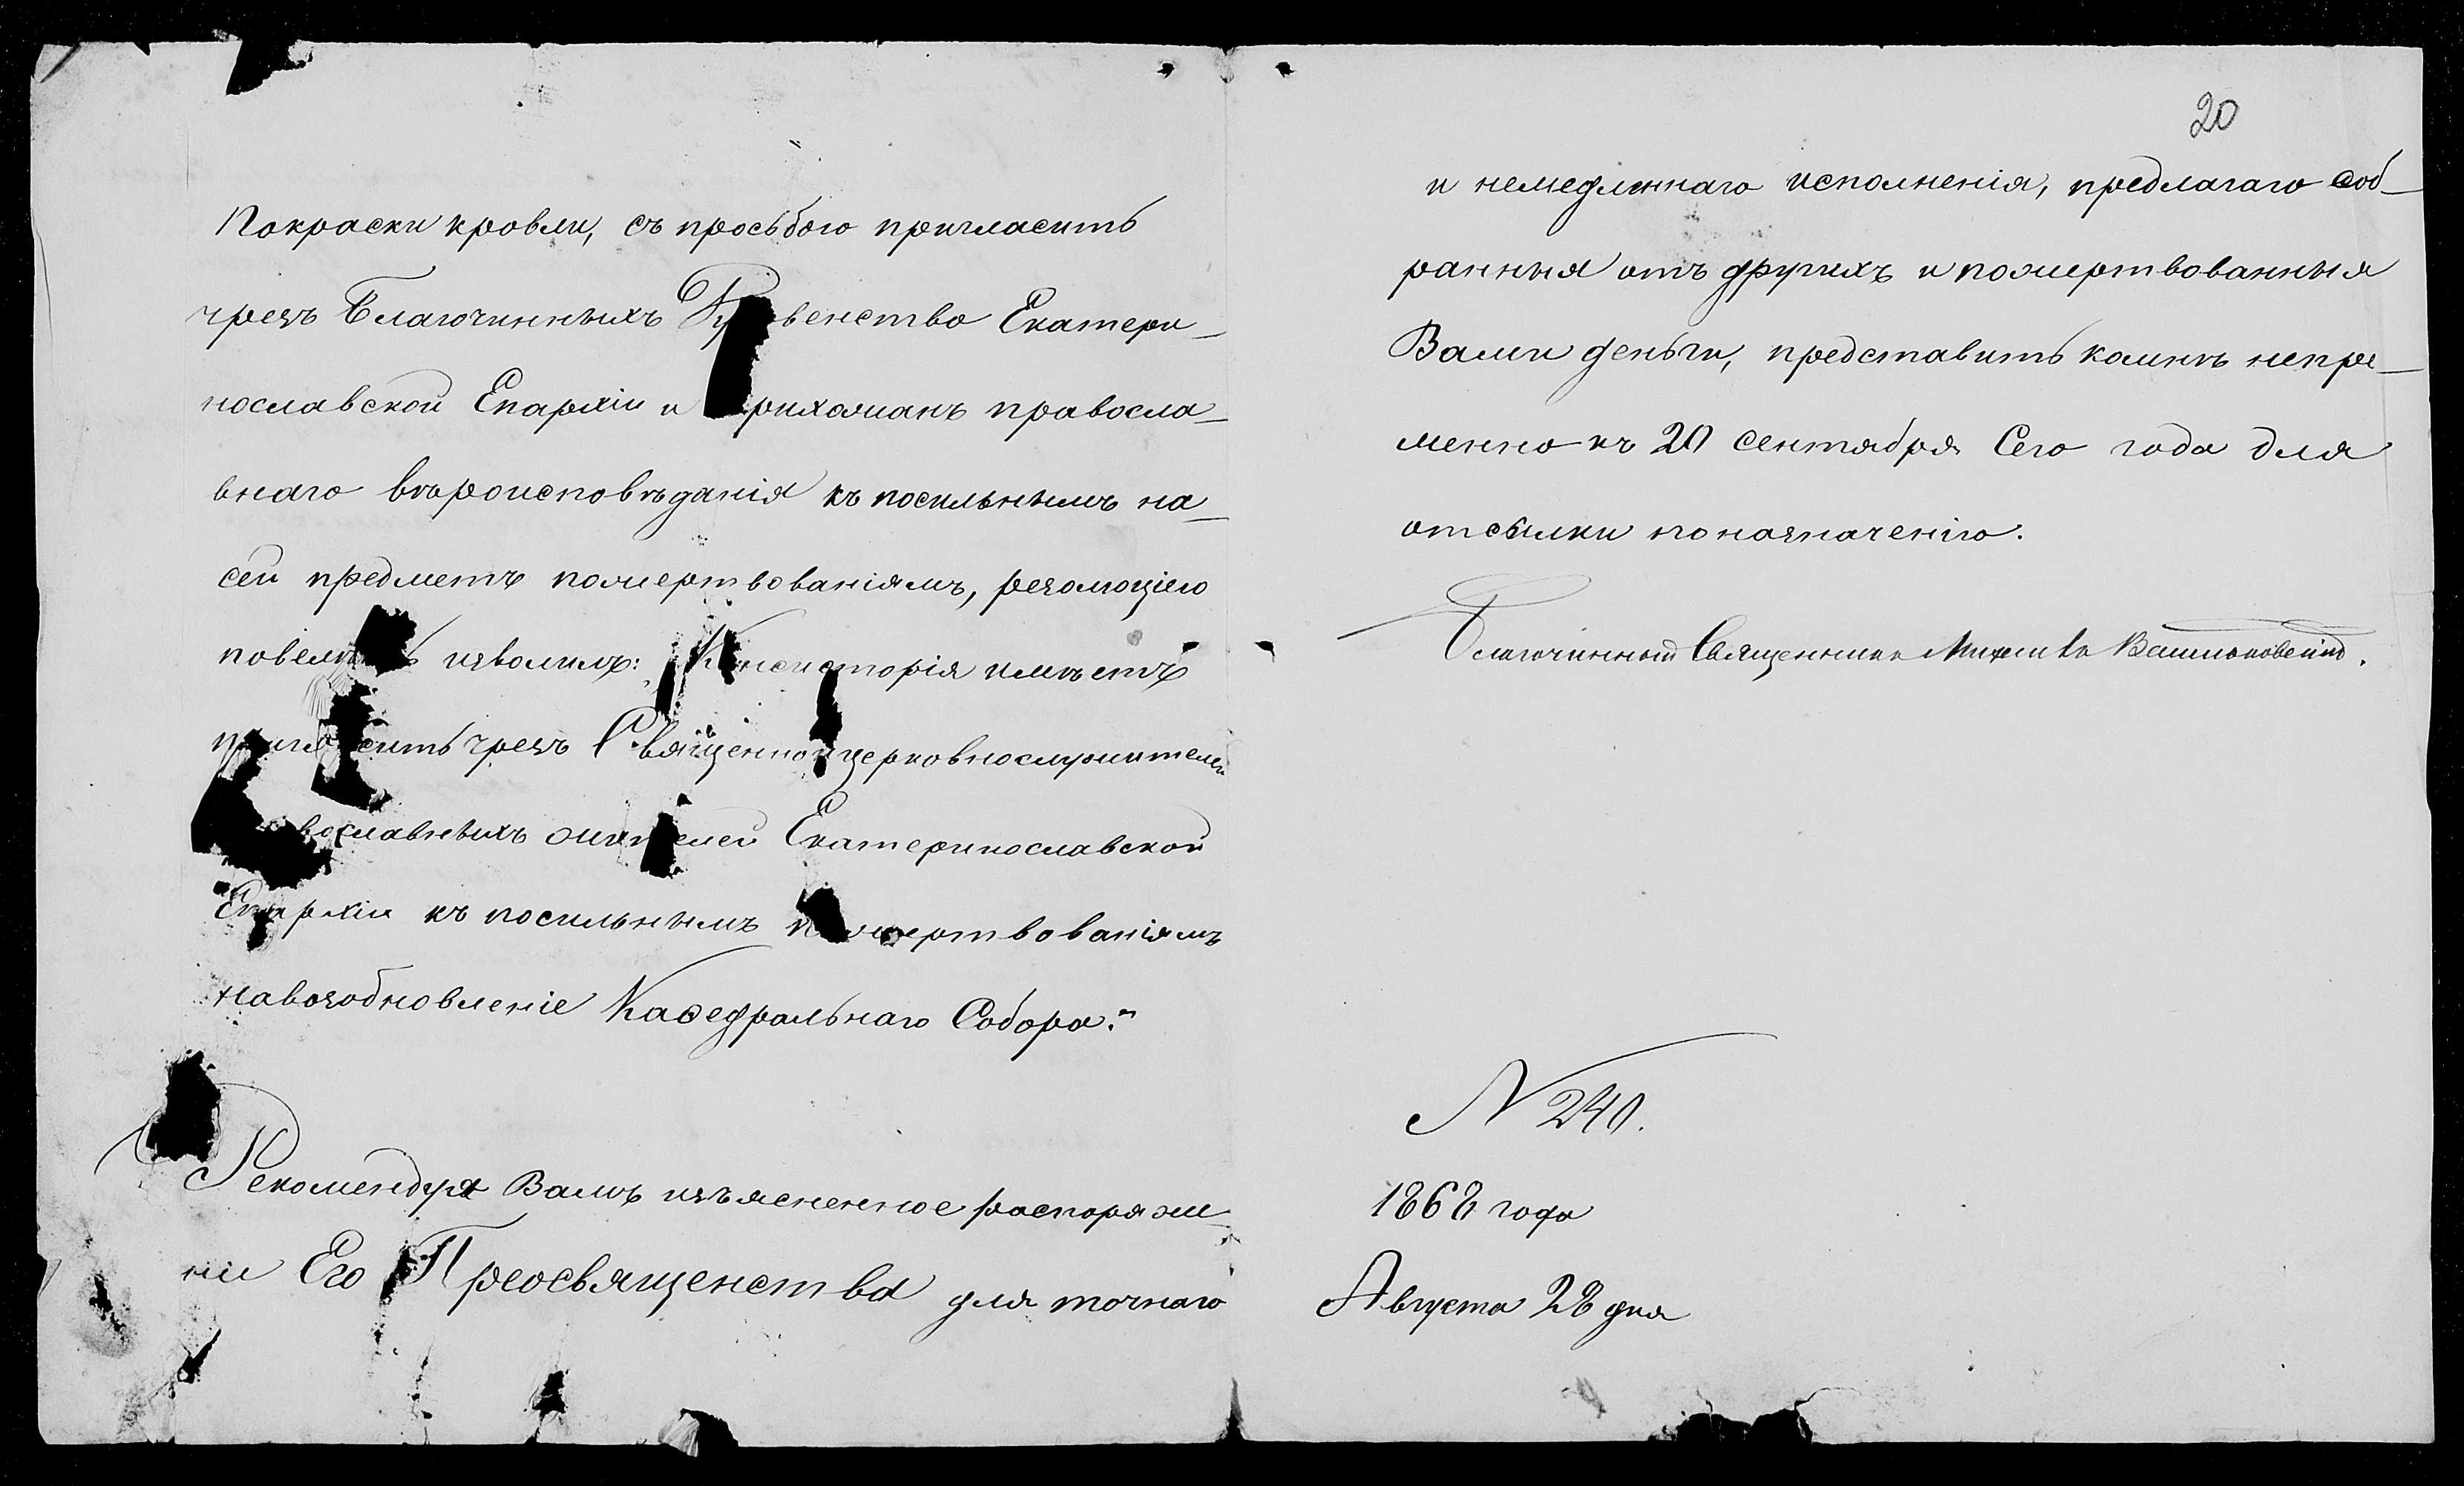 Покраски кровли, съ просьбою пригласить
чрезъ Благочинныхъ Духовенство Екатери-
нославской Епархіи и прихожанъ правосла-
внаго вѣроисповѣданія къ посильнымъ на
сей предметъ пожертвованіямъ, резолюціею
повелѣть изволилъ: „Консисторія имѣетъ
пригласить чрезъ Священно и церковнослужителей
православныхъ жителей Екатеринославской
Епархіи къ посильнымъ пожертвованіямъ
на возобновленіе Каѳедральнаго Собора."
Рекомендуя Вамъ изъясненное распоряже-
ніе Его Преосвященства для точнаго
20
и немедленнаго исполненія, предлагаю соб-
ранныя отъ другихъ и пожертвованныя
Вами деньги, представить ко мнѣ непре-
менно къ 20 сентября сего года для
отсылки по назначенію.
Благочинный Священникъ
N 240.
1868 года
Августа 28 дня